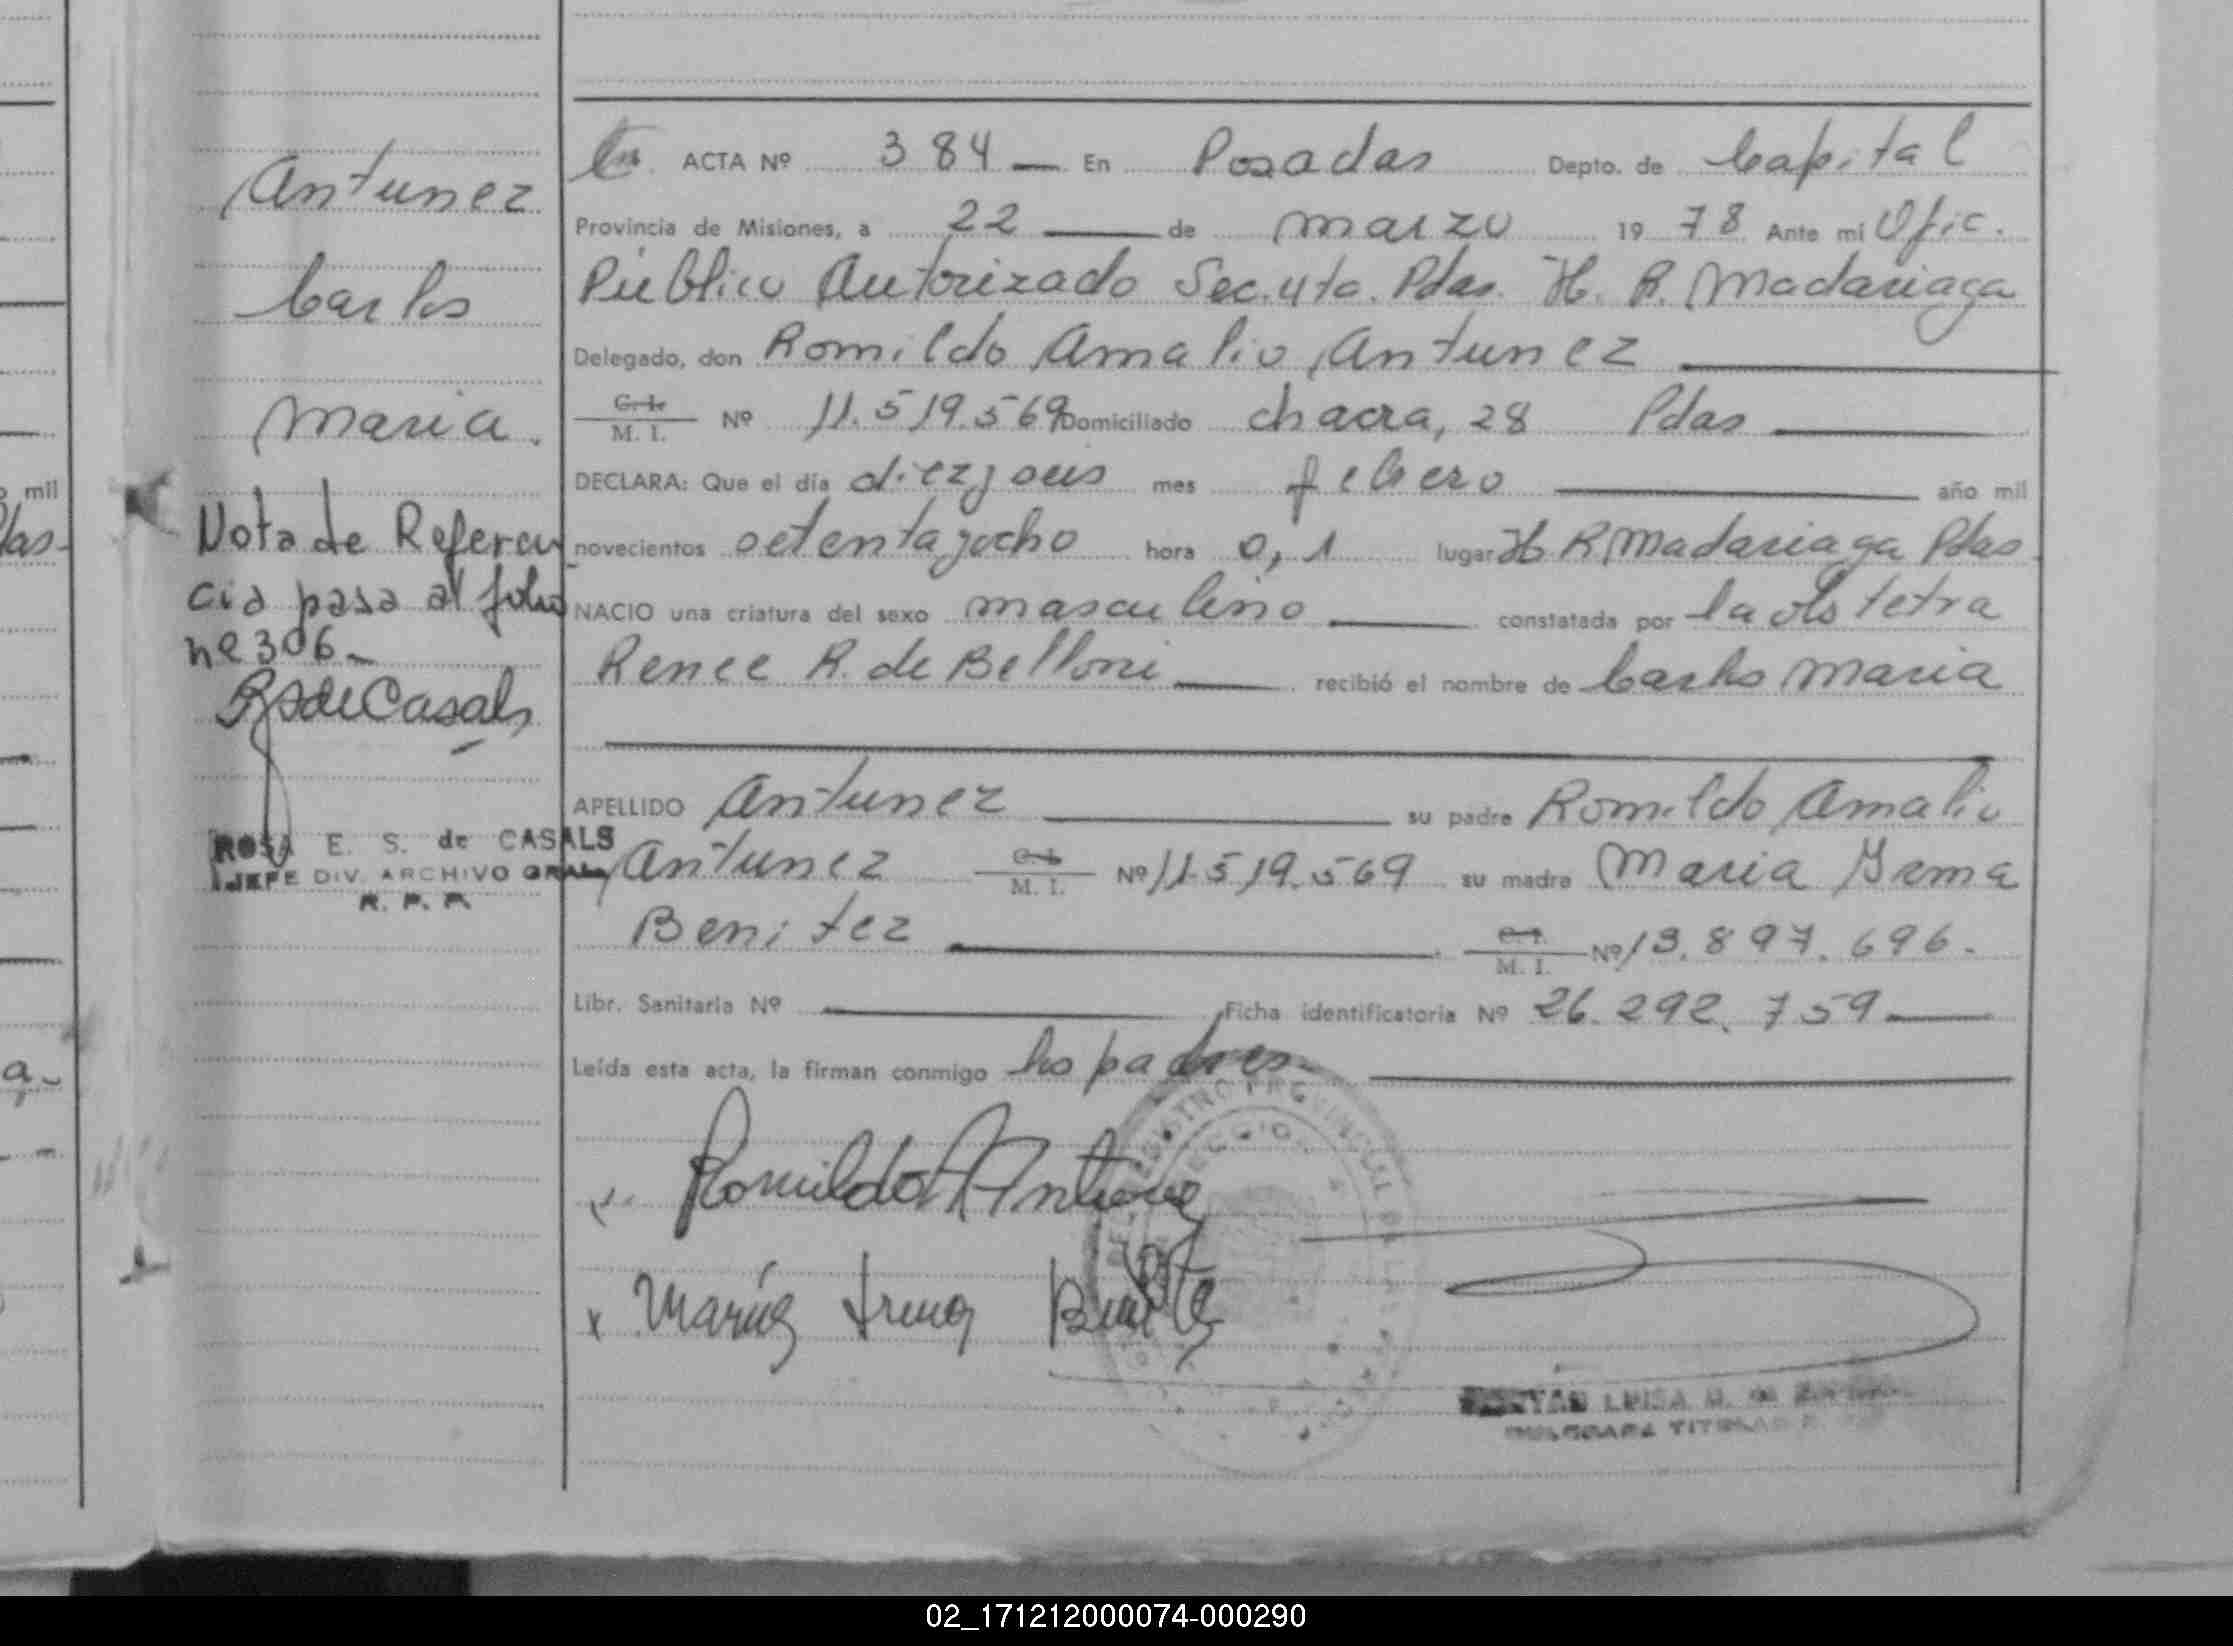 Antunez
Carlos
Maria.
Nota de Referen
cia pasa al folio
nº 306.-
RSdeCasals
ROSA E. S. de CASALS
JEFE DIV. ARCHIVO GRAL
R. P. P.
ACTA Nº 384 — En Posadas Depto. de Capital
Provincia de Misiones, a 22 — de marzo 1978 Ante mi Ofic.
Público Autorizado Sec. 4ta. Pdas. H. R. Madariaga
Delegado, don Romildo Amalio Antunez
C. I. / M. I. Nº 11.519.569 Domiciliado chacra, 28 Pdas
DECLARA: Que el día diezyseis mes febrero año mil
novecientos setentayocho hora 0,1 lugar H R Madariaga Pdas.
NACIO una criatura del sexo masculino constatada por la obstetra
Renee R. de Belloni recibió el nombre de Carlos Maria
APELLIDO Antunez su padre Romildo Amalio
Antunez C. I. / M. I. Nº 11.519.569 su madre Maria Irma
Benitez C. I. / M. I. Nº 13.897.696.
Libr. Sanitaria Nº — Ficha identificatoria Nº 26.292.759
Leída esta acta, la firman conmigo los padres
Romildo A Antunez
x María Irma Benitez
LUISA
TITULAR
o mil
das
a.
02_171212000074-000290